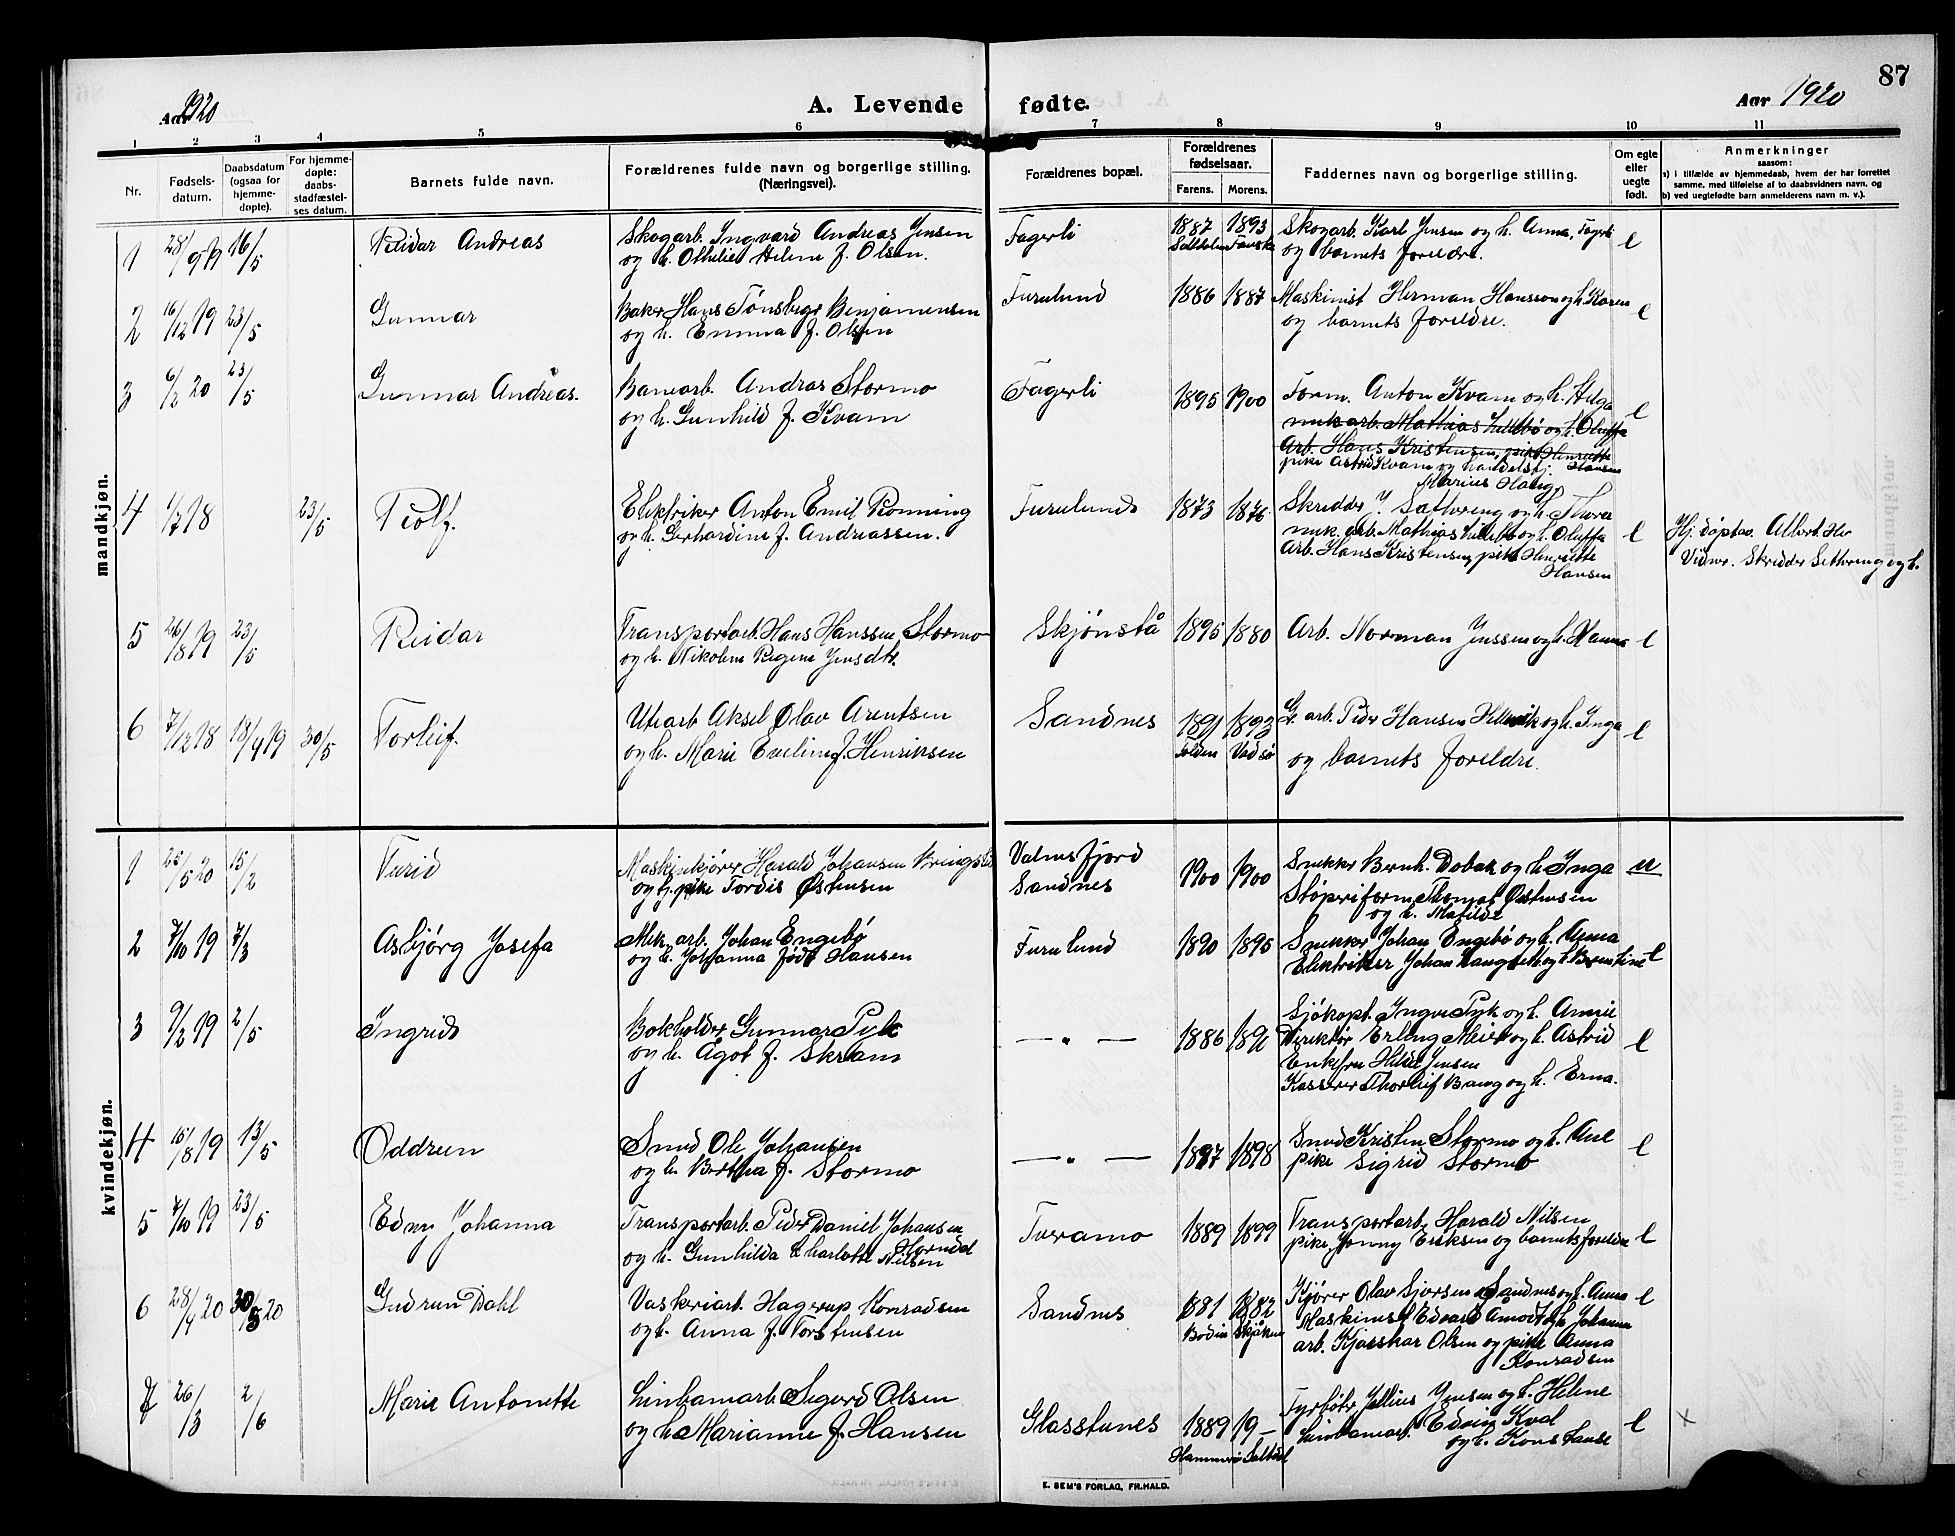 Aar 1920
A. Levende fødte.
Aar 1920
87
1 2 3 4 5 6 7 8 9 10 11
Nr.
Fødsels-
datum.
Daabsdatum
(ogsaa for
hjemme-
døpte).
For hjemme-
døpte:
daabs-
stadfæstel-
ses datum.
Barnets fulde navn.
Forældrenes fulde navn og borgerlige stilling.
(Næringsvei).
Forældrenes bopæl.
Forældrenes
fødselsaar.
Farens. Morens.
Faddernes navn og borgerlige stilling.
Om egte
eller
uegte
født.
Anmerkninger
saasom:
a) i tilfælde av hjemmedaab, hvem der har forrettet
samme, med tilføielse af to daabsvidners navn, og
b) ved uegtefødte barn anmelderens navn m. v.).
mandkjøn.
1 28/9 19 16/5 Reidar Andreas Skogarb. Ingvard Andreas Jensen
og h. Othelie Helene f. Olsen.
Fagerli 1887 1893 Skogarb. Karl Jensen og h. Anna, Fagerli e
Saltdalen Fauske og barnets foreldre.
2 16/12 19 23/5 Gunnar Baker Hans Tønsberg Benjaminsen
og h. Emma f. Olsen
Furulund 1886 1887 Maskinist Herman Hansson og h. Karen e
og barnets foreldre.
3 6/2 20 23/5 Gunnar Andreas. Banearb. Andras Stormo
og h. Gunhild f. Kvam
Fagerli 1895 1900 Form. Anton Kvam og h. Helga e
mek arb. Mathias og h. Oluffa
Arb. Hans Kristensen, pike Henriette
Hansen
pike Astrid Kvam og handelsbj.
Marius Haug
4 1/7 18 23/5 Rolf. Elektriker Anton Emil Rønning
og h. Gerhardine f. Andreassen.
Furulund 1873 1876 Skredder J. Sætereng og h. Thora
mek. arb. Mathias og h. Oluffa e
Arb. Hans Kristensen, pike Henriette
Hansen
Hj. døpt av Albert
Vidner. Skredder Settereng og h.
5 26/8 19 23/5 Reidar Transportarb. Hans Hanssen Stormo
og h. Nikoline Regine Jensdtr.
Skjønstå 1895 1880 Arb. Norman Jenssen og h. Hanna e
6 7/12 18 18/9 19 30/5 Torleif. Utearb Aksel Olav Arentsen
og h. Marie Eveline f. Henriksen
Sandnes 1891 1893 Gr. arb. Peder Hansen og h. Inga e
Folden Vadsø og barnets foreldre.
kvindekjøn.
1 25/5 20 15/2 Turid Maskinkjører Harald Johansen
og pike Tordis Østensen
Valnesfjord
Sandnes 1900 1900 Snekker Bernh. Dobak og h. Inga u
Støperiform. Thomas Østensen
og h. Matilde
2 7/10 19 7/3 Asbjørg Josefa Mek. arb. Johan Engebø
og h. Johanna født Hansen
Furulund 1890 1895 Snekker Johan Engebø og h. Anna
Elektriker Johan Langseth og h. Berntine e
3 9/2 19 2/5 Ingrid Bokholder Gunnar Pyk
og h. Ågot f. Skram
— „ — 1886 Sjökapt. Ingve Pyk og h. Annie
Direktør Erling Meier og h. Astrid e
Enkefru Jensen
Kasserer Thorleif Bang og h. Erna.
4 15/8 19 13/5 Oddrun Smed Ole Johansen
og h. Bertha f. Stormo
— „ — 1897 1898 Smed Kristen Stormo og h. Ane e
pike Sigrid Stormo
5 7/10 19 23/5 Edny Johanna Transportarb. Peder Daniel Johansen
og h. Gunhilda Charlotte Nilsen
Furamo 1889 1899 Transportarb. Harald Nilsen
pike Jonny Eriksen og barnets foreldre e
6 28/4 20 30/5 20 Gudrun Dahl Vaskeriarb. Hagerup Konradsen
og h. Anna f. Torstensen
Sandnes 1881 1882 Kjører Olav Sjursen Sandnes og h. Anna e
Bodin Maskinist Edvard Amodt og h. Johanna
arb. Olsen og pike Anna
Konradsen
7 26/3 2/6 Marie Antonette Linbanearb. Sigurd Olsen
og h. Marianne f. Hansen
Glasstunes 1889 19— Fyrbøter Julius Jensen og h. Helene
Hammerø Saltdal Linbanearb. Edvin Kval e
og h. Konstanse
x
E. SEM'S FORLAG, FR.HALD.